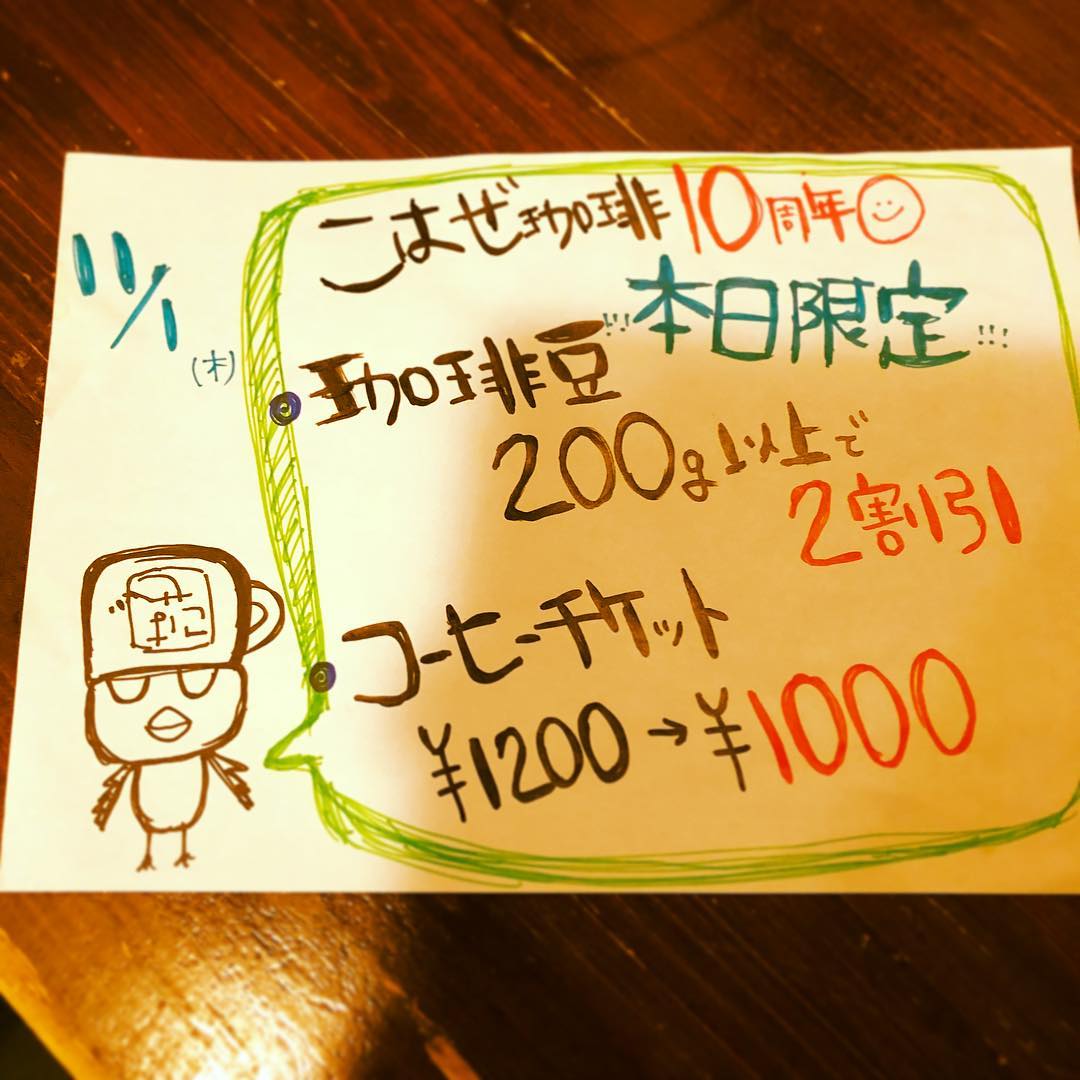 11/1
(木)
こはぜ珈琲10周年
!!!本日限定!!!
珈琲豆
200g以上で
2割引
コーヒーチケット
¥1200→¥1000
こはぜ